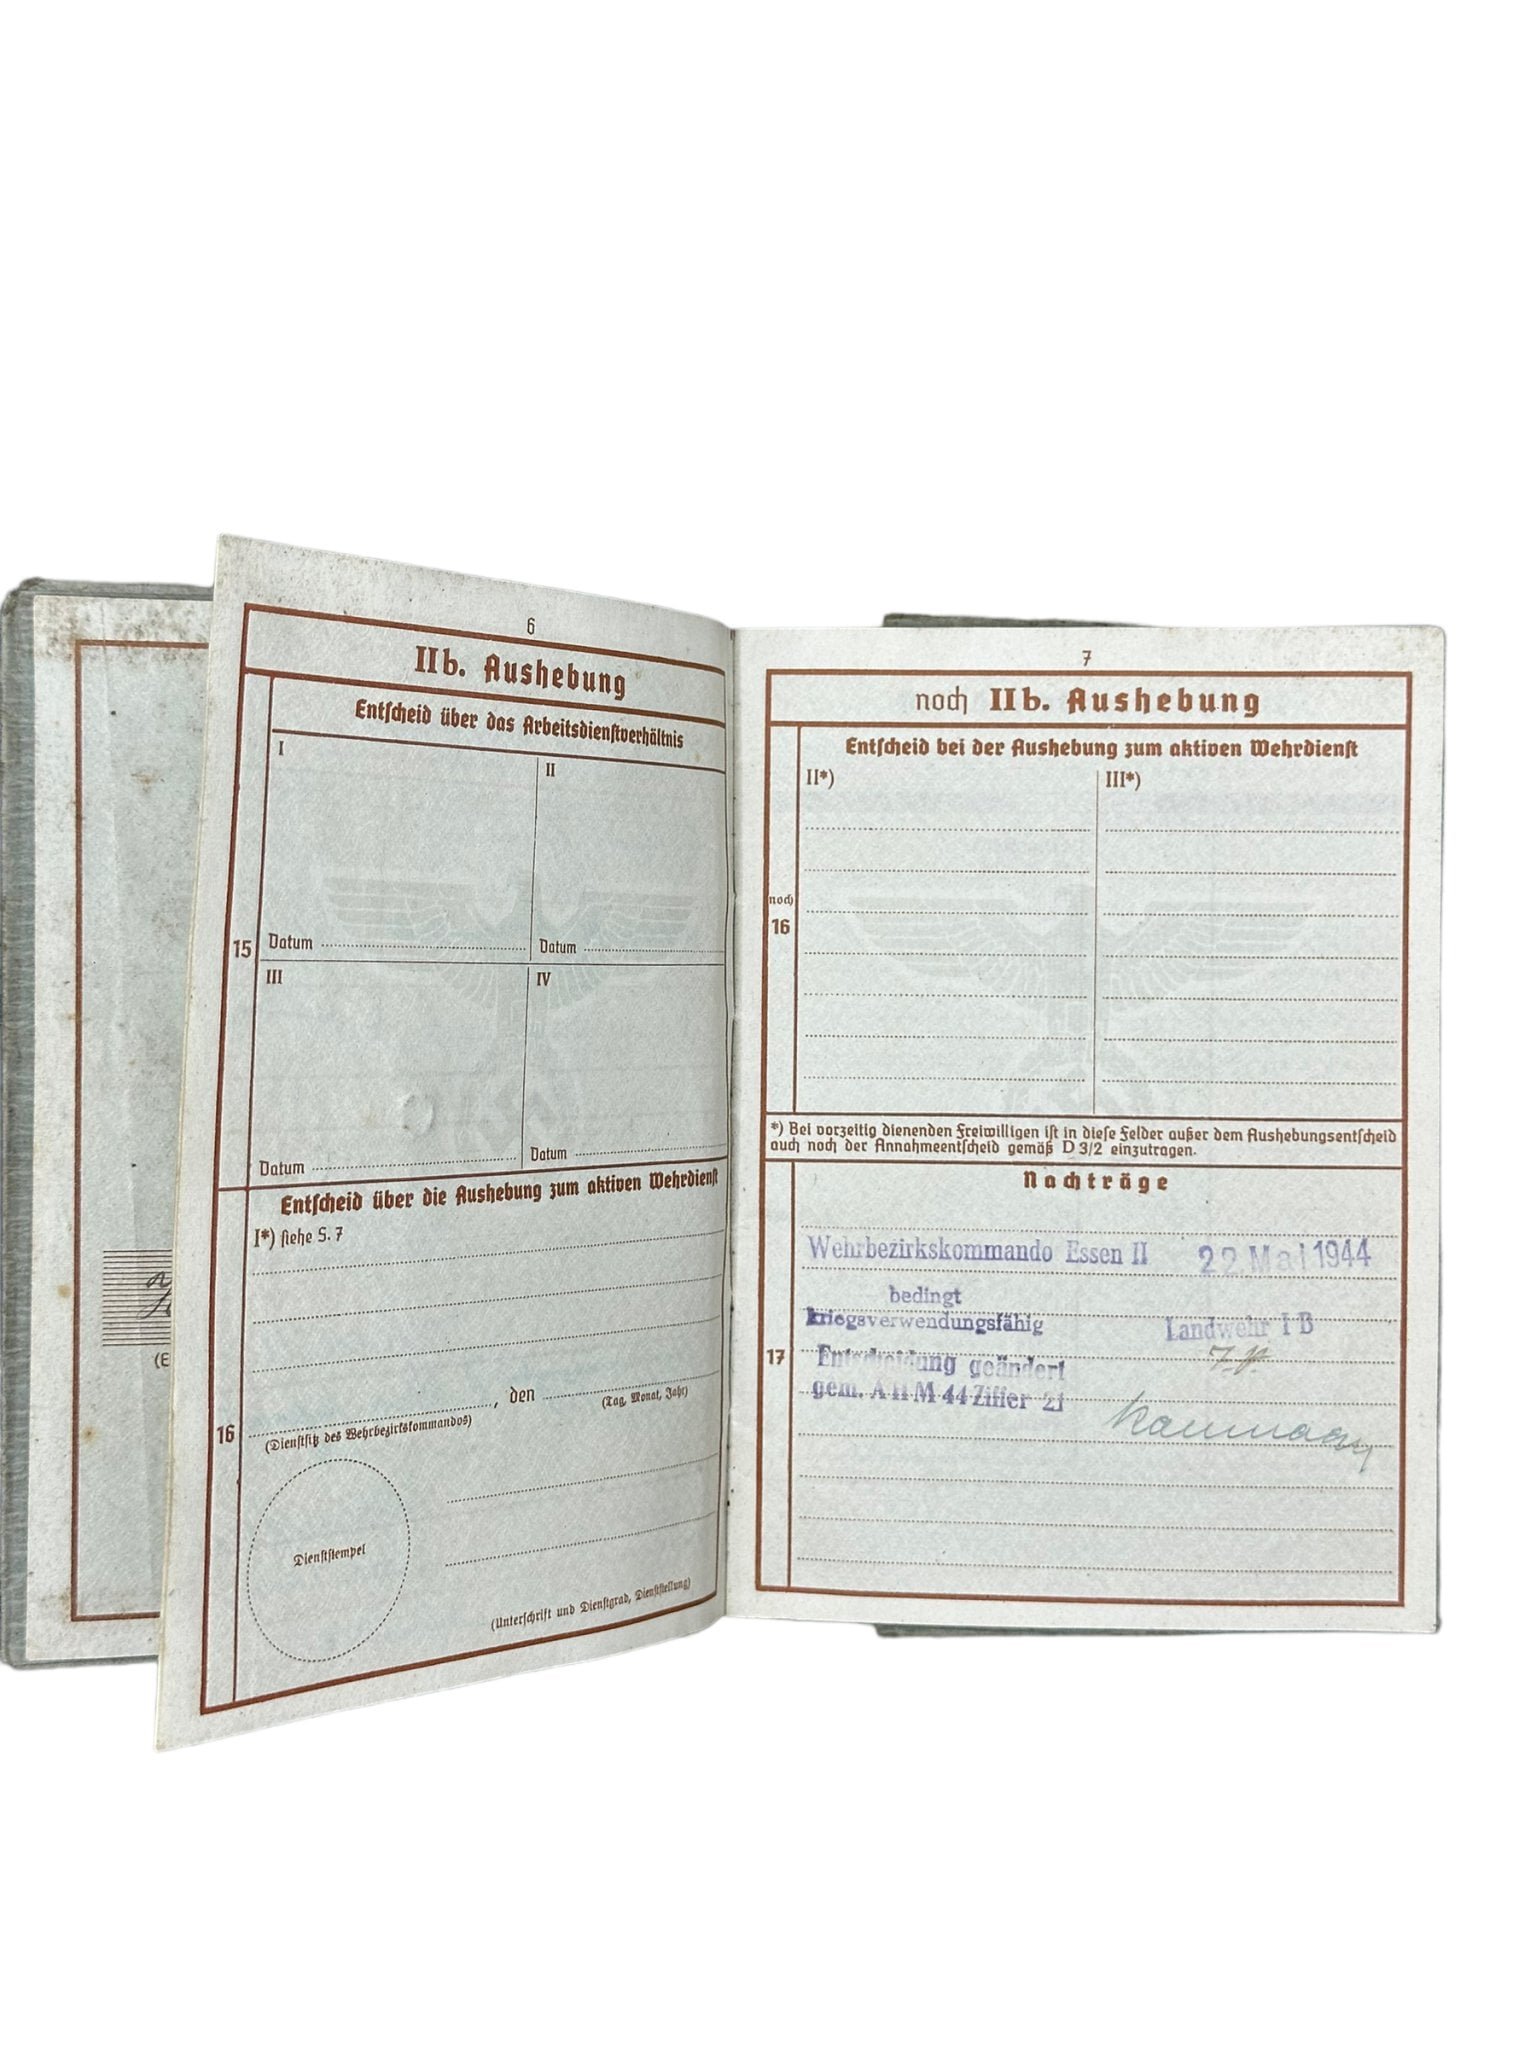 6
IIb. Aushebung
Entscheid über das Arbeitsdienstverhältnis
I
II
15
Datum
Datum
III
IV
Datum
Datum
Entscheid über die Aushebung zum aktiven Wehrdienst
I*) siehe S. 7
16
, den
(Dienstsitz des Wehrbezirkskommandos)
(Tag, Monat, Jahr)
Dienststempel
(Unterschrift und Dienstgrad, Dienststellung)
(E
7
noch IIb. Aushebung
Entscheid bei der Aushebung zum aktiven Wehrdienst
II*)
III*)
noch
16
*) Bei vorzeitig dienenden Freiwilligen ist in diese Felder außer dem Aushebungsentscheid
auch noch der Annahmeentscheid gemäß D 3/2 einzutragen.
Nachträge
17
Wehrbezirkskommando Essen II 22. Mai 1944
bedingt
kriegsverwendungsfähig Landwehr I B
Entscheidung geändert
gem. AHM 44 Ziffer 21